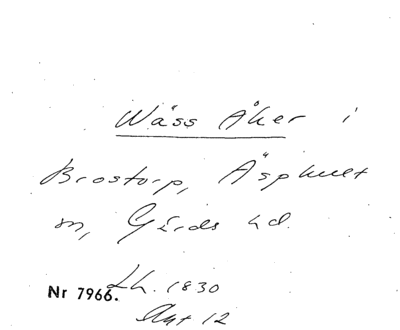 Wäss Åker i
Brostorp, Äsphult
sn, Gärds hd.
Lh. 1830
Nr 7966.
Akt 12